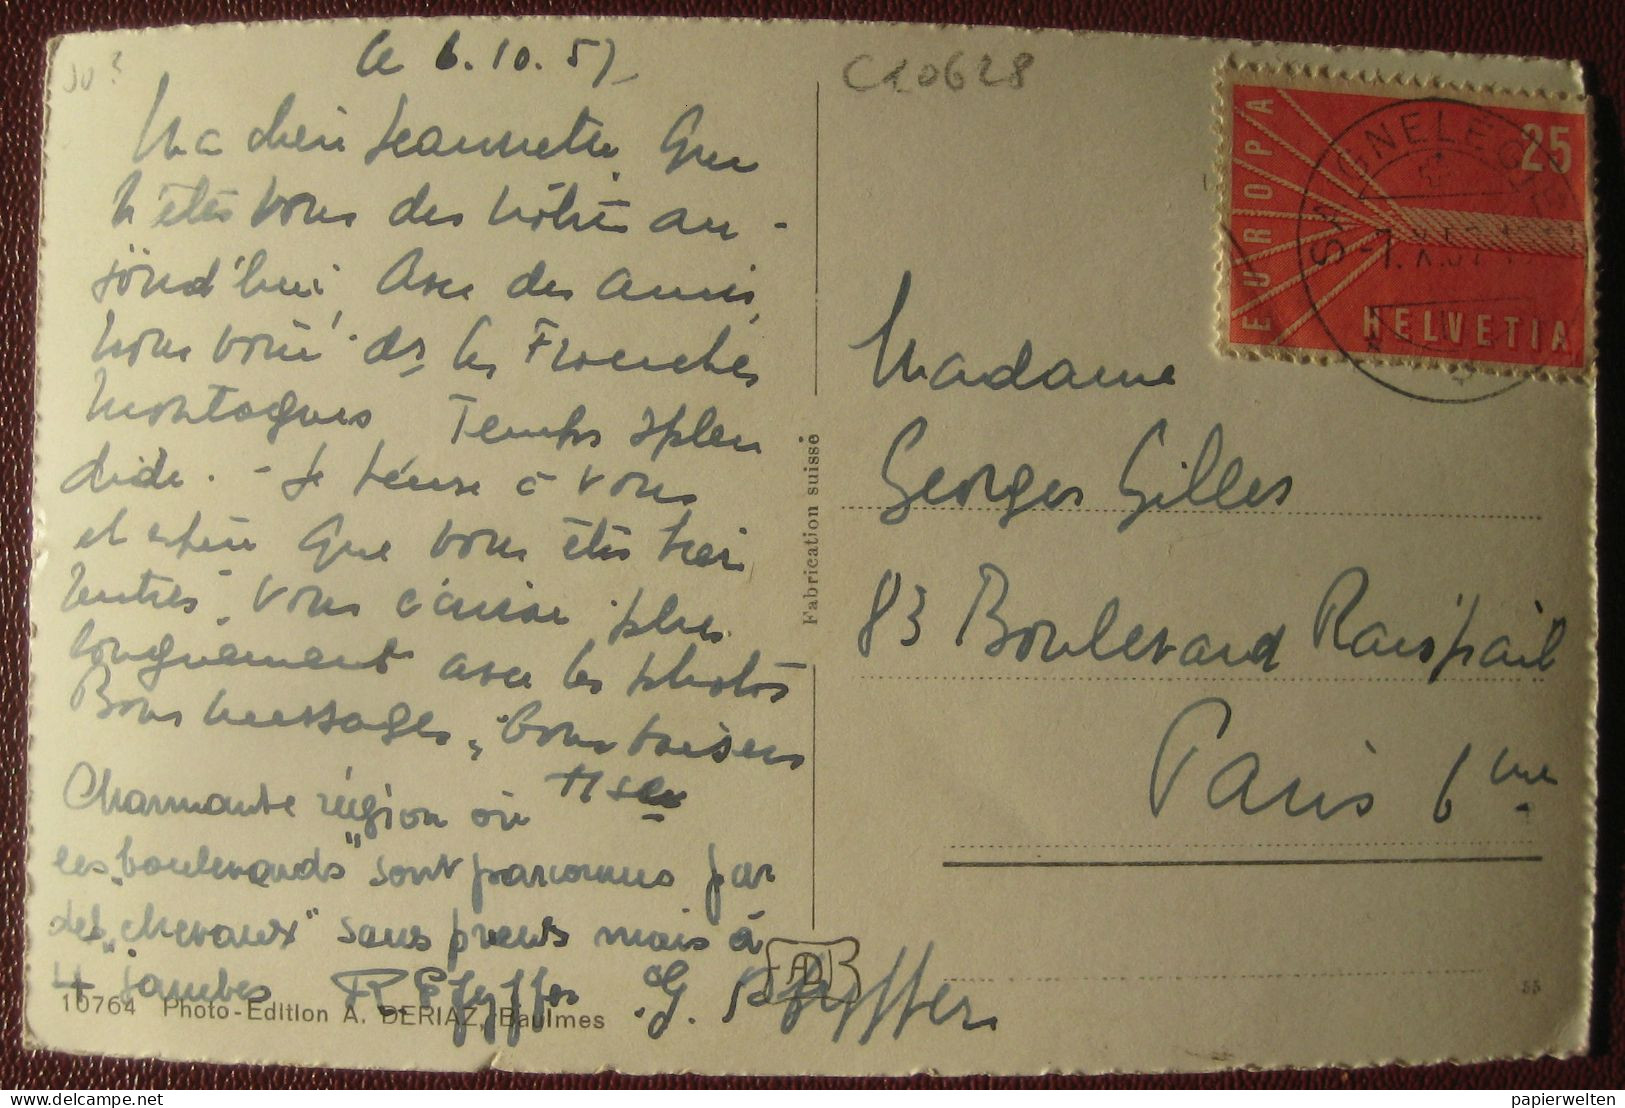 Le 6.10.57
Ma chère Jeannette, Que
n'êtes vous des nôtres au-
jourd'hui. Avec des amis,
nous voici ds les Franches
Montagnes Temps splen
dide. - Je pense à vous
et espère que vous êtes
rentrés. Vous écrirai plus
longuement avec les photos
Bons messages, bons baisers
Charmante région où
les "boulevards" sont parcourus par
des "chevaux" sans pneus mais à
4 jambes R. Pfyffer G. Pfyffer
10764 Photo-Edition A. DERIAZ, Baulmes
Fabrication suisse
C10628
EUROPA
25
HELVETIA
SAIGNELÉGIER
-7.X.57
Madame
Georges Gilles
83 Boulevard Raspail
Paris 6me
55
delcampe.net
papierwelten